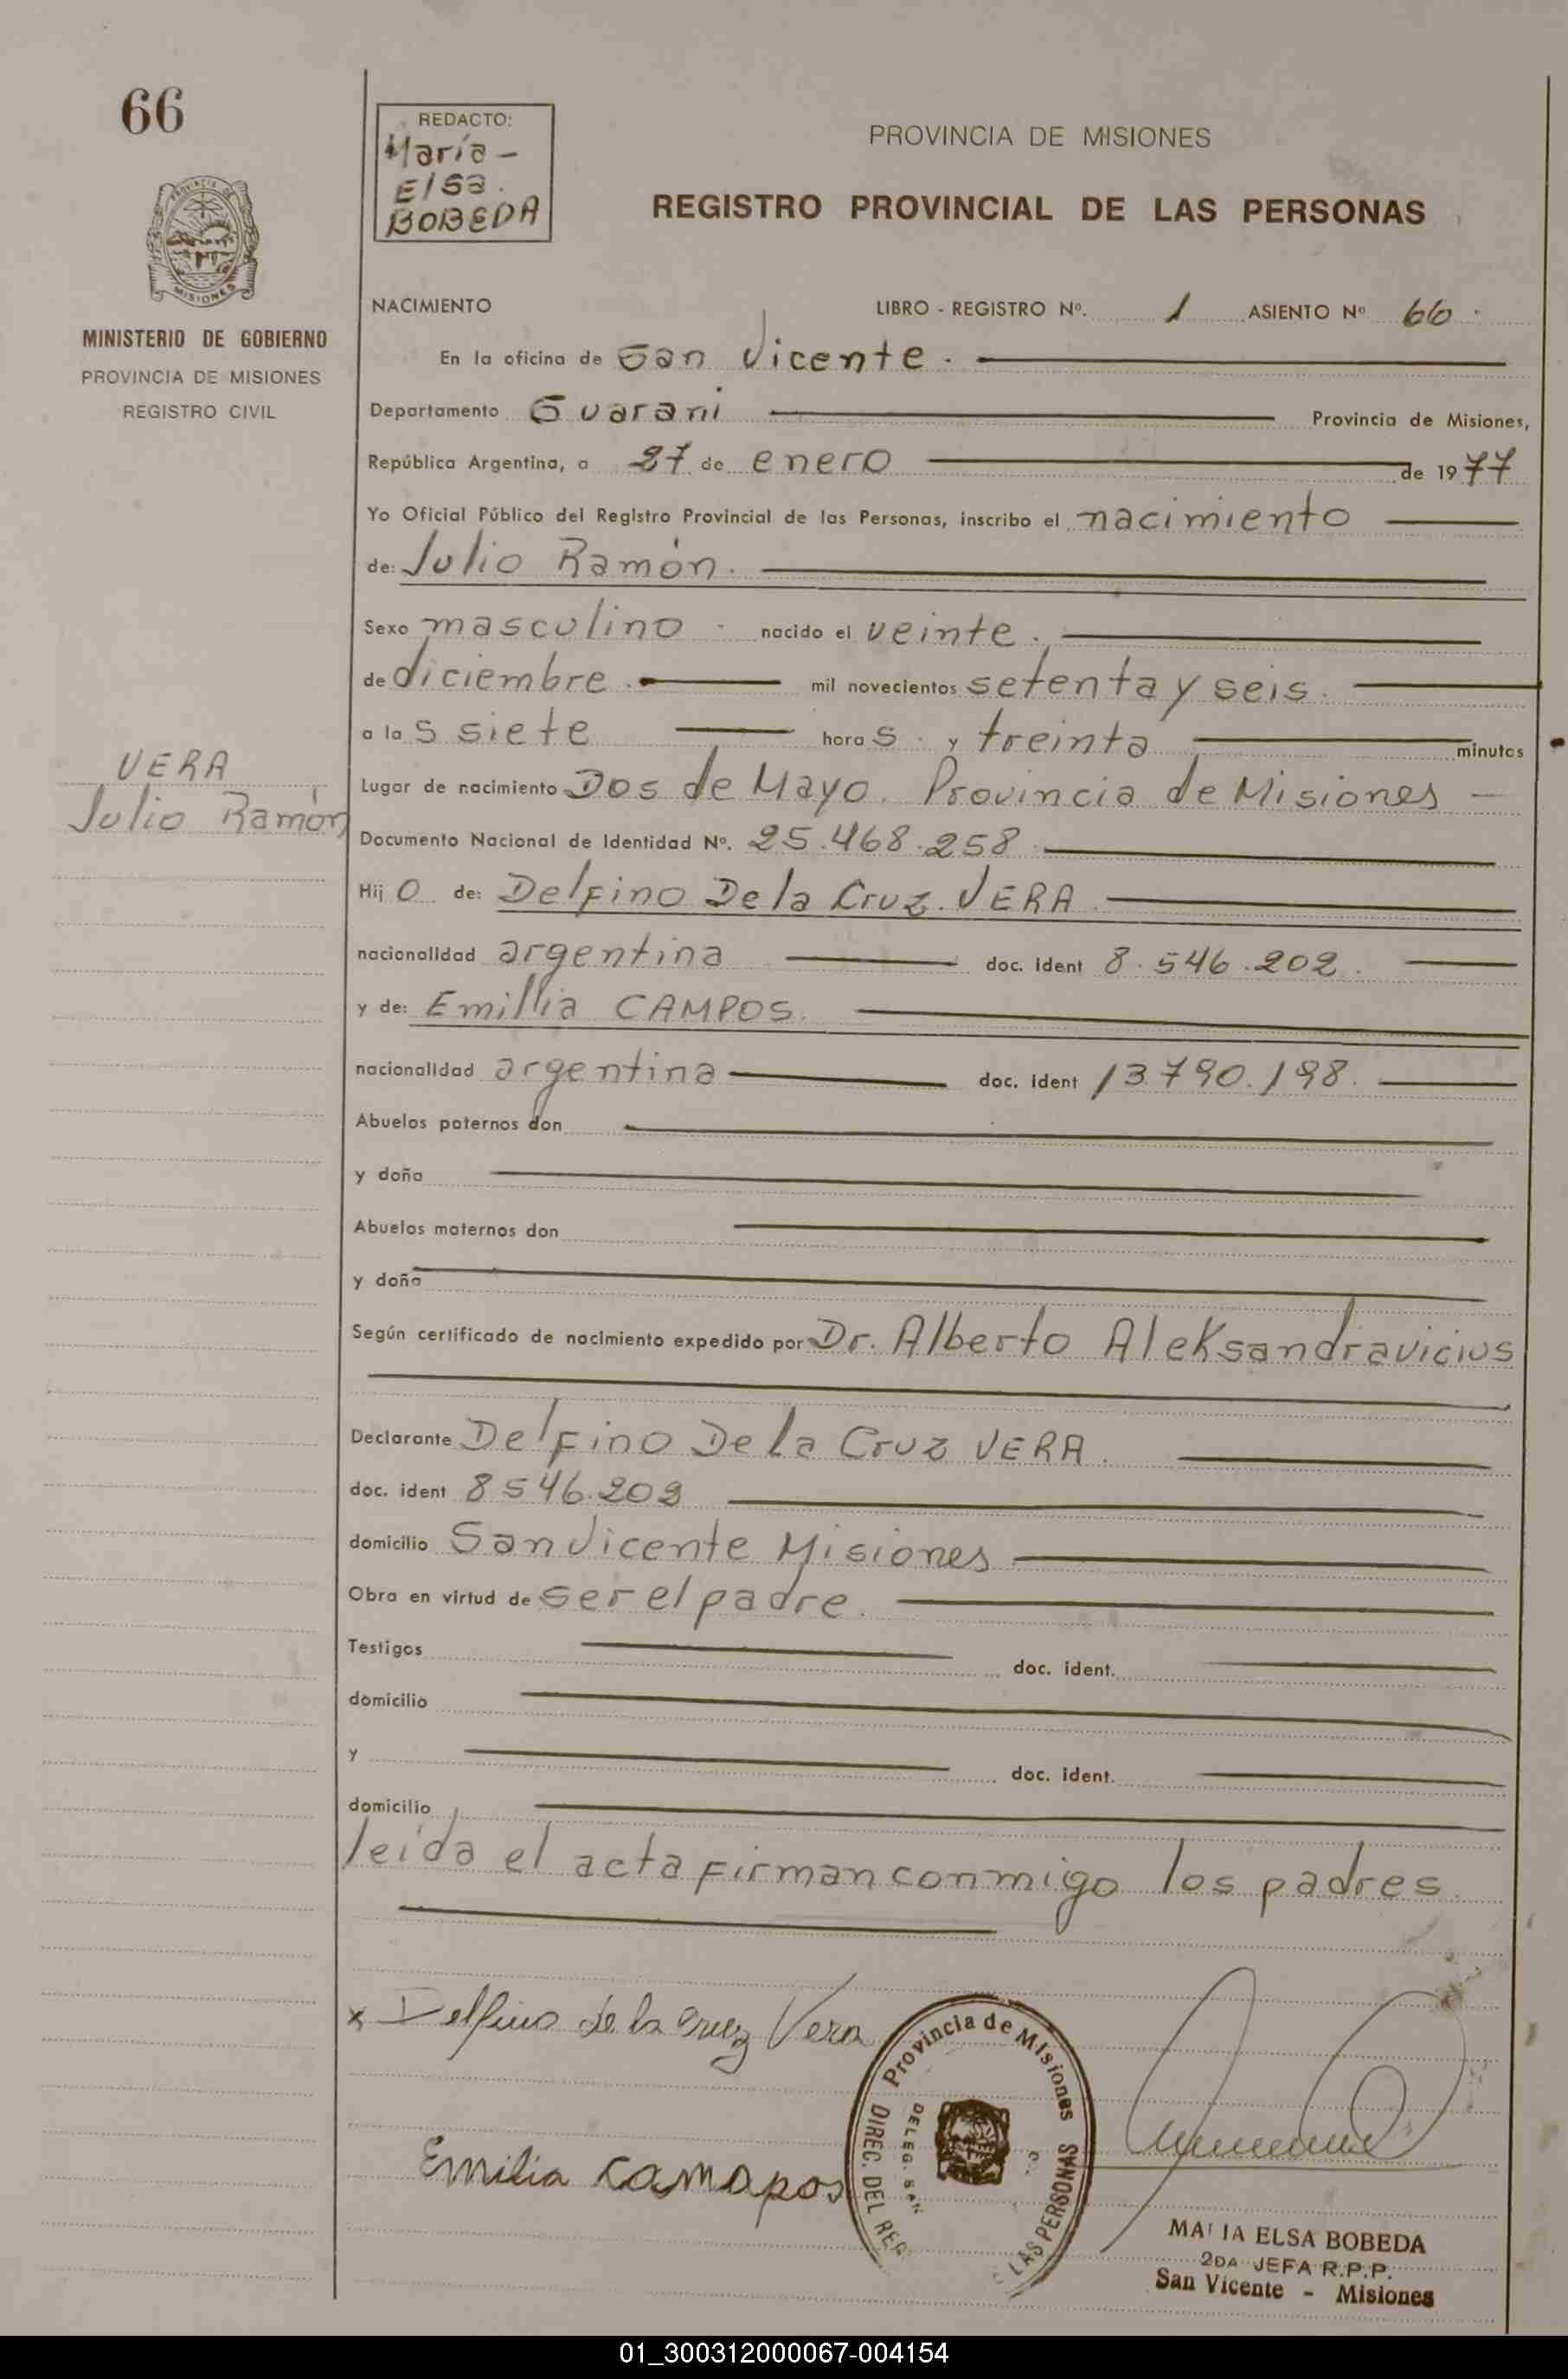 66
REDACTO:
María -
Elsa.
BOBEDA
PROVINCIA DE MISIONES
REGISTRO PROVINCIAL DE LAS PERSONAS
PROVINCIA DE
MISIONES
MINISTERIO DE GOBIERNO
PROVINCIA DE MISIONES
REGISTRO CIVIL
NACIMIENTO LIBRO - REGISTRO Nº. 1 ASIENTO Nº 66.
En la oficina de San Vicente.
Departamento Guarani Provincia de Misiones,
República Argentina, a 27 de enero de 1977
Yo Oficial Público del Registro Provincial de las Personas, inscribo el nacimiento
de: Julio Ramón.
Sexo masculino nacido el veinte.
de diciembre. mil novecientos setenta y seis.
a las siete horas y treinta minutos
VERA
Julio Ramón
Lugar de nacimiento Dos de Mayo. Provincia de Misiones -
Documento Nacional de Identidad Nº. 25.468.258
Hijo de: Delfino De la Cruz. VERA
nacionalidad argentina doc. ident 8.546.202.
y de: Emillia CAMPOS.
nacionalidad argentina doc. ident 13.790.198.
Abuelos paternos don
y doña
Abuelos maternos don
y doña
Según certificado de nacimiento expedido por Dr. Alberto Aleksandravicius
Declarante Delfino De la Cruz VERA.
doc. ident 8546.202
domicilio San Vicente Misiones
Obra en virtud de ser el padre.
Testigos doc. ident.
domicilio
y doc. ident.
domicilio
leída el acta firman conmigo los padres.
x Delfino de la Cruz Vera
Emilia Camapos
Provincia de Misiones
DIREC. DEL REG LAS PERSONAS
DELEG. SAN
MARIA ELSA BOBEDA
2DA JEFA R.P.P.
San Vicente - Misiones
01_300312000067-004154